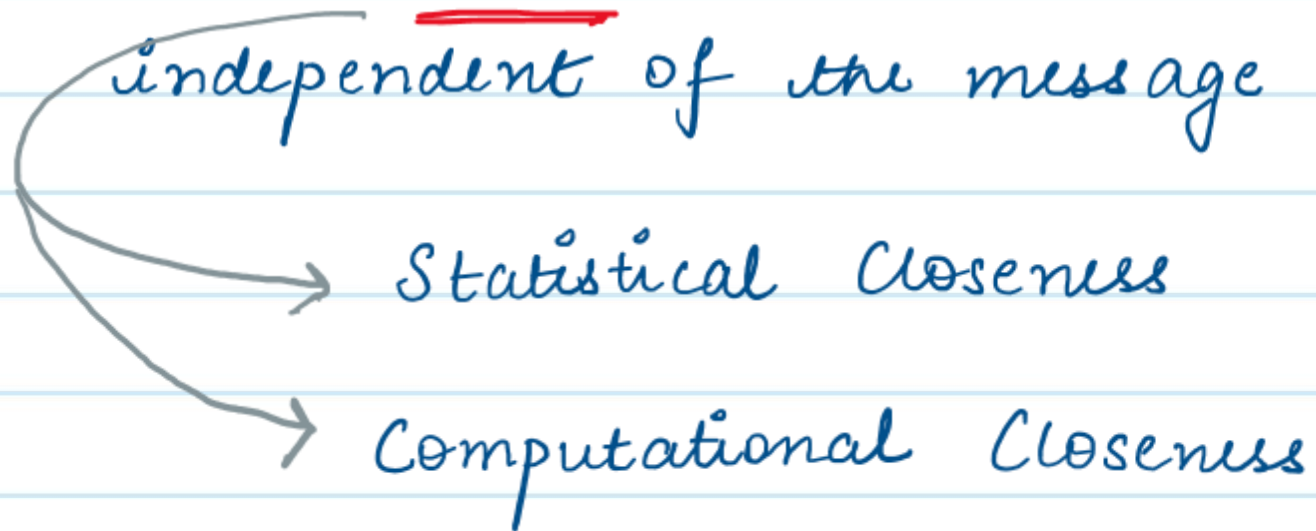 independent of the message
Statistical Closeness
Computational Closeness